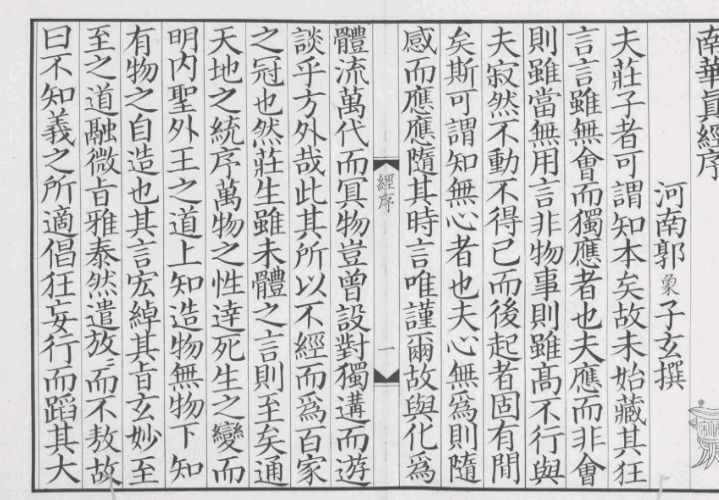 南華真經序
河南郭象子玄撰
夫莊子者可謂知本矣故未始藏其狂
言言雖無會而獨應者也夫應而非會
則雖當無用言非物事則雖高不行與
夫寂然不動不得已而後起者固有間
矣斯可謂知無心者也夫心無爲則隨
感而應應隨其時言唯謹爾故與化爲
經序
一
體流萬代而冥物豈曾設對獨遘而遊
談乎方外哉此其所以不經而爲百家
之冠也然莊生雖未體之言則至矣通
天地之統序萬物之性達死生之變而
明内聖外王之道上知造物無物下知
有物之自造也其言宏綽其旨玄妙至
至之道融微旨雅泰然遣放而不敖故
曰不知義之所適倡狂妄行而蹈其大